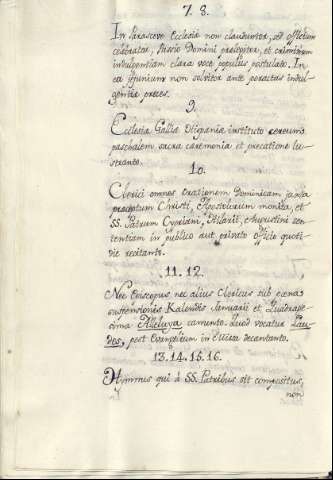 7. 8.
In Parasceve Ecclesia non claudantur, sed officium
celebratur, Passio Domini predicetur, et criminum
indulgentiam clara voce populus postulato. In
ea jejunium non solvitor ante peractas indul-
gentia preces.
9.
Ecclesia Gallia Hispania instituto cereum
paschalem sacra caeremonia et precatione lu-
stranto.
10.
Clerici omnes orationem Dominicam juxta
praeceptum Christi, Apostolorum monita, et
SS. Patrum Cypriani, Hilarii, Augustini sen-
tentiam in publico aut privato officio quoti-
die recitanto.
11. 12.
Nec Episcopus nec alius Clericus sub poena
suspensionis Kalendis Januarii et Quadrage-
sima Alleluya canunto. Quod vocatur Lau-
des, post Evangelium in Missa decantanto.
13. 14. 15. 16.
Hymnus qui à SS. Patribus sit compositus,
non